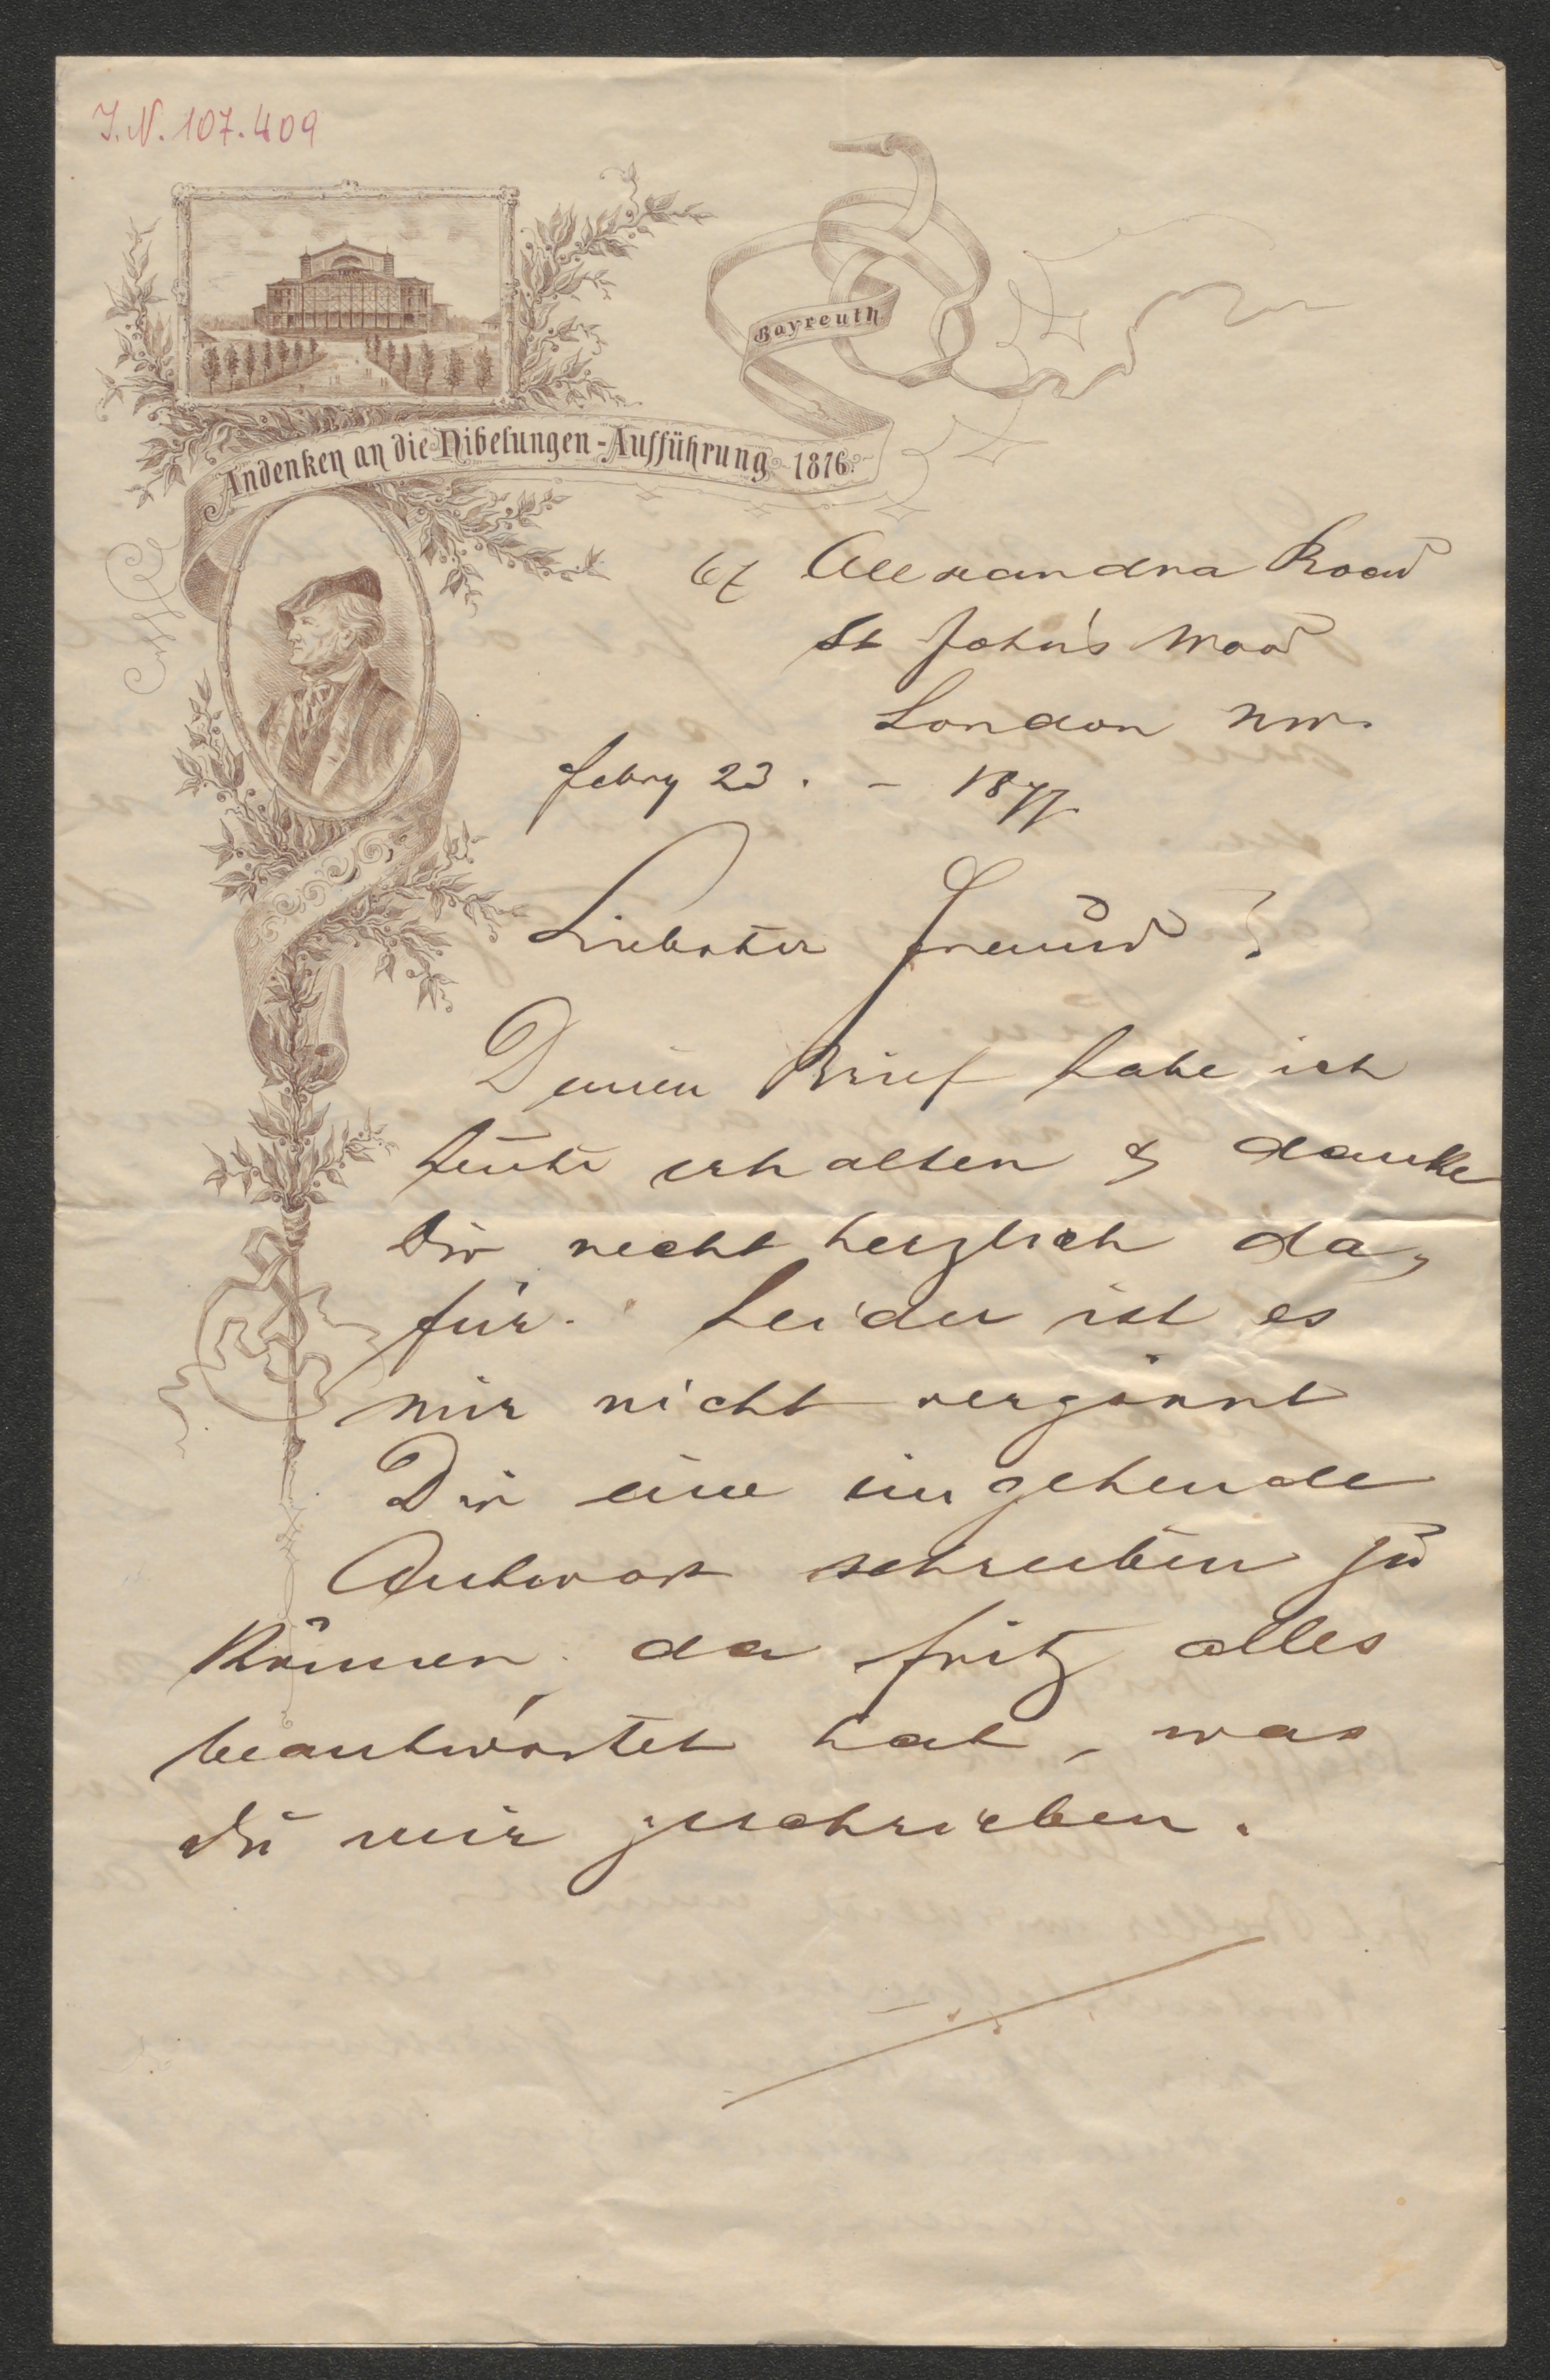 J.N. 107.409
Bayreuth.
Andenken an die Nibelungen-Aufführung 1876.
67 Alexandra Road
St John's Wood
London NW.
febry 23. - 1877
Liebster Freund!
Deinen Brief habe ich
heute erhalten & danke
Dir recht herzlich da,
für. Leider ist es
mir nicht vergönnt
Dir eine eingehende
Antwort schreiben zu
können, da Fritz alles
beantwortet hat, was
Du mir geschrieben.